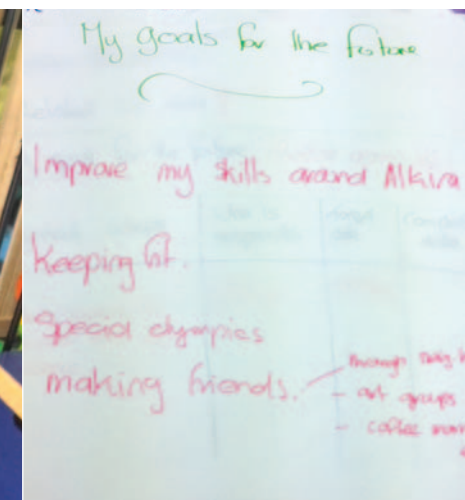 My goals for the future
Improve my skills around Alkira
Keeping fit.
Special olympics
making friends.
through
- art groups
- coffee